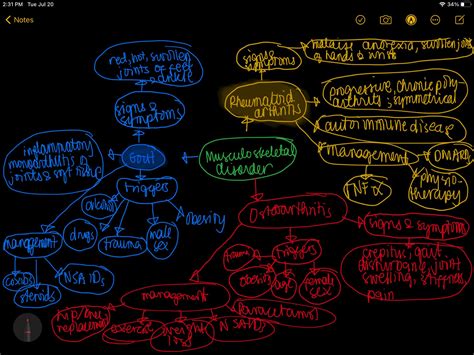 2:31 PM Tue Jul 20
84%
Notes
red, hot, swollen
joints of feet
& ankle
signs &
symptoms
inflammatory
monoarthritis of
joints & soft tissue
Gout
triggers
alcohol
drugs
trauma
male
sex
obesity
management
steroids
NSAIDs
Musculoskeletal
disorder
signs &
symptoms
malaise anorexia, swollen joints
of hands & wrists
Rheumatoid
arthritis
progressive, chronic poly
arthritis; symmetrical
autoimmune disease
management
DMARDs
physio-
therapy
TNF α
Osteoarthritis
signs & symptoms
crepitus, gait
disturbance, joint
swelling, stiffness,
pain
triggers
trauma
obesity
age
female
sex
management
hip/knee
replacement
exercise
weight
loss
NSAIDs
Paracetamol